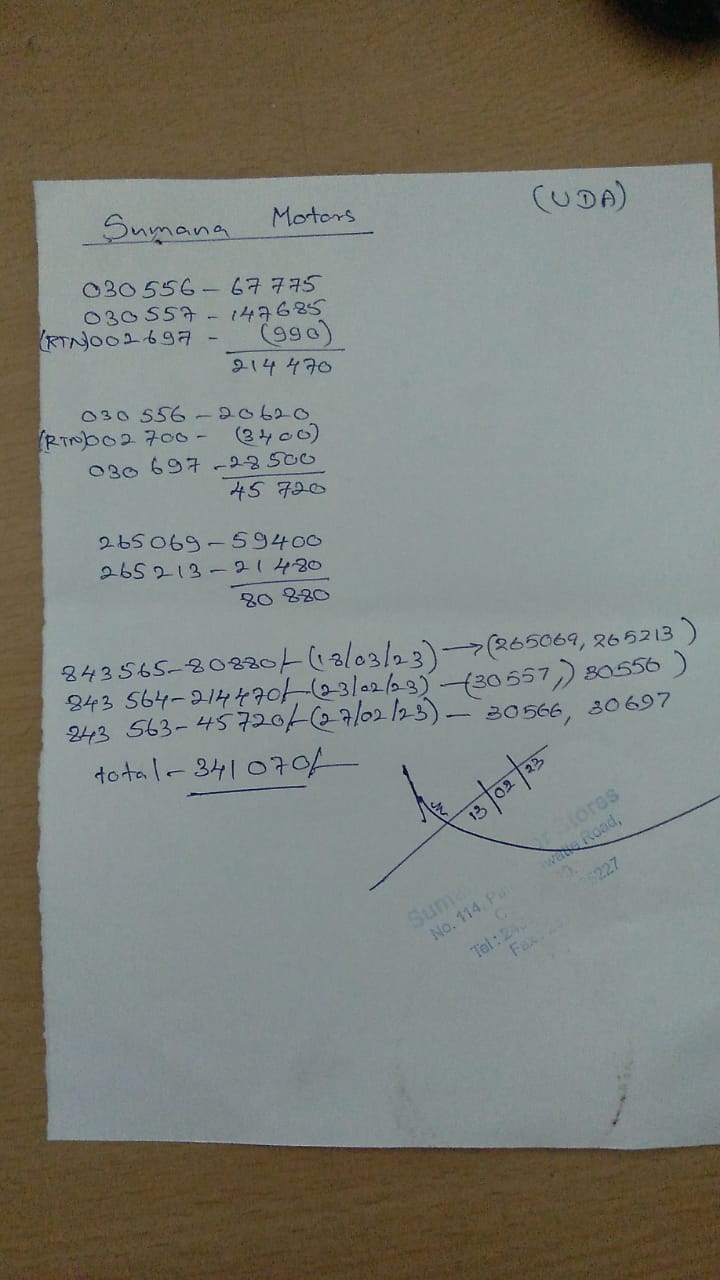 (UDA)
Sumana Motors
030556 - 67775
030557 - 147685
(RTN)002697 - (990)
214 470
030 556 - 20620
(RTN)002 700 - (3400)
030 697 - 28500
45 720
265069 - 59400
265213 - 21 480
80 880
843565 - 80880/- (18/03/23) → (265069, 265213)
843 564 - 214470/- (23/02/23) - (30557,) 30556)
843 563 - 45720/- (27/02/23) - 30566, 30697
total - 341070/-
13/02/23
Stores
No. 114, Road,
Tel :
Fax